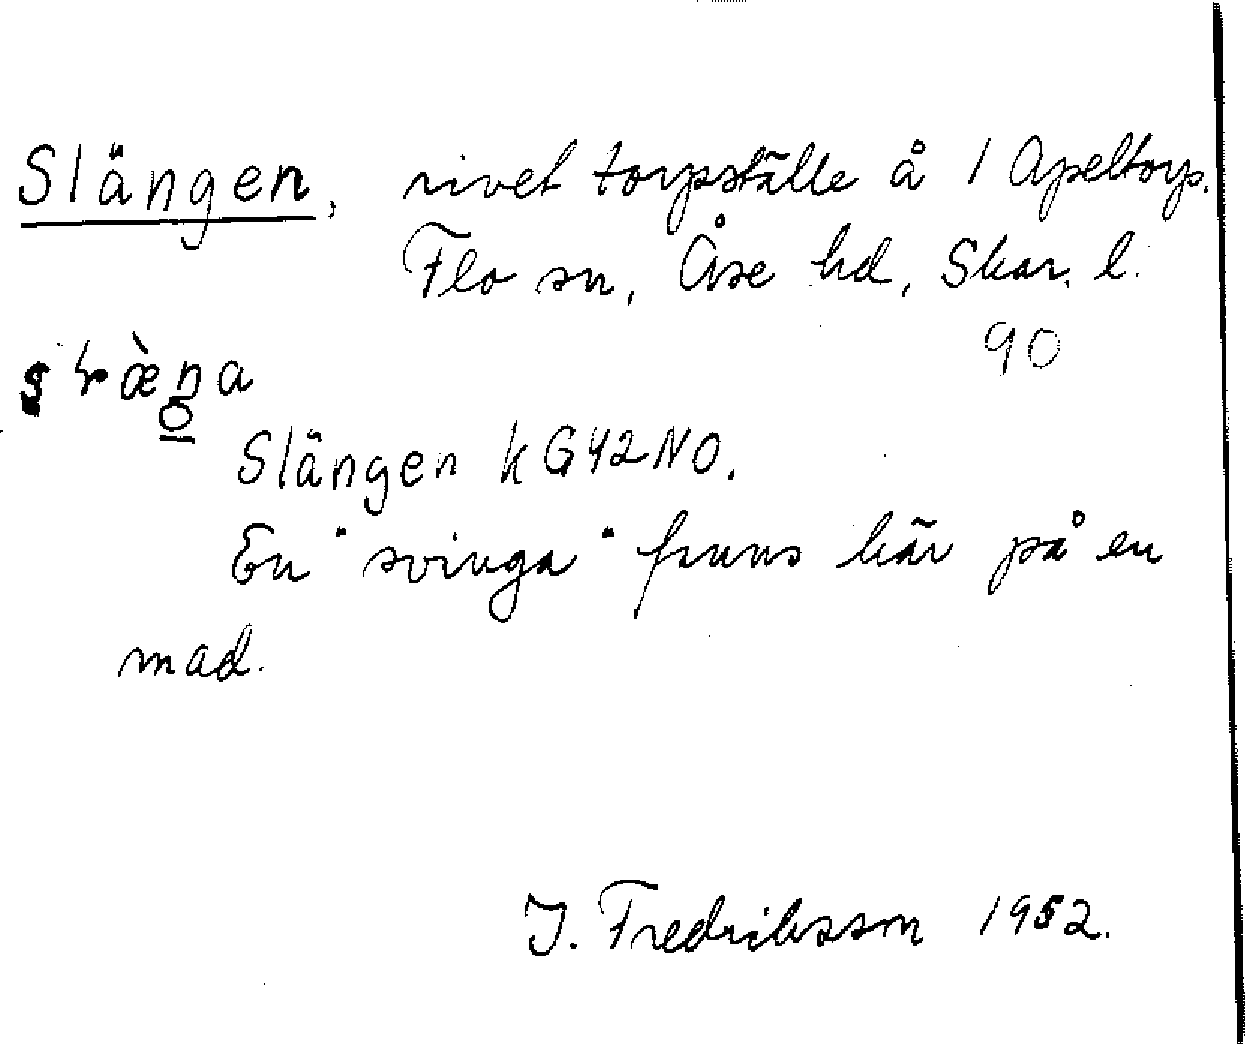 Slängen, rivet torpställe å 1 Apeltorp.
Flo sn, Åse hd, Skar. l.
90
Slängen k G42NO.
En "svinga" finns här på en
mad.
I. Fredriksson 1952.